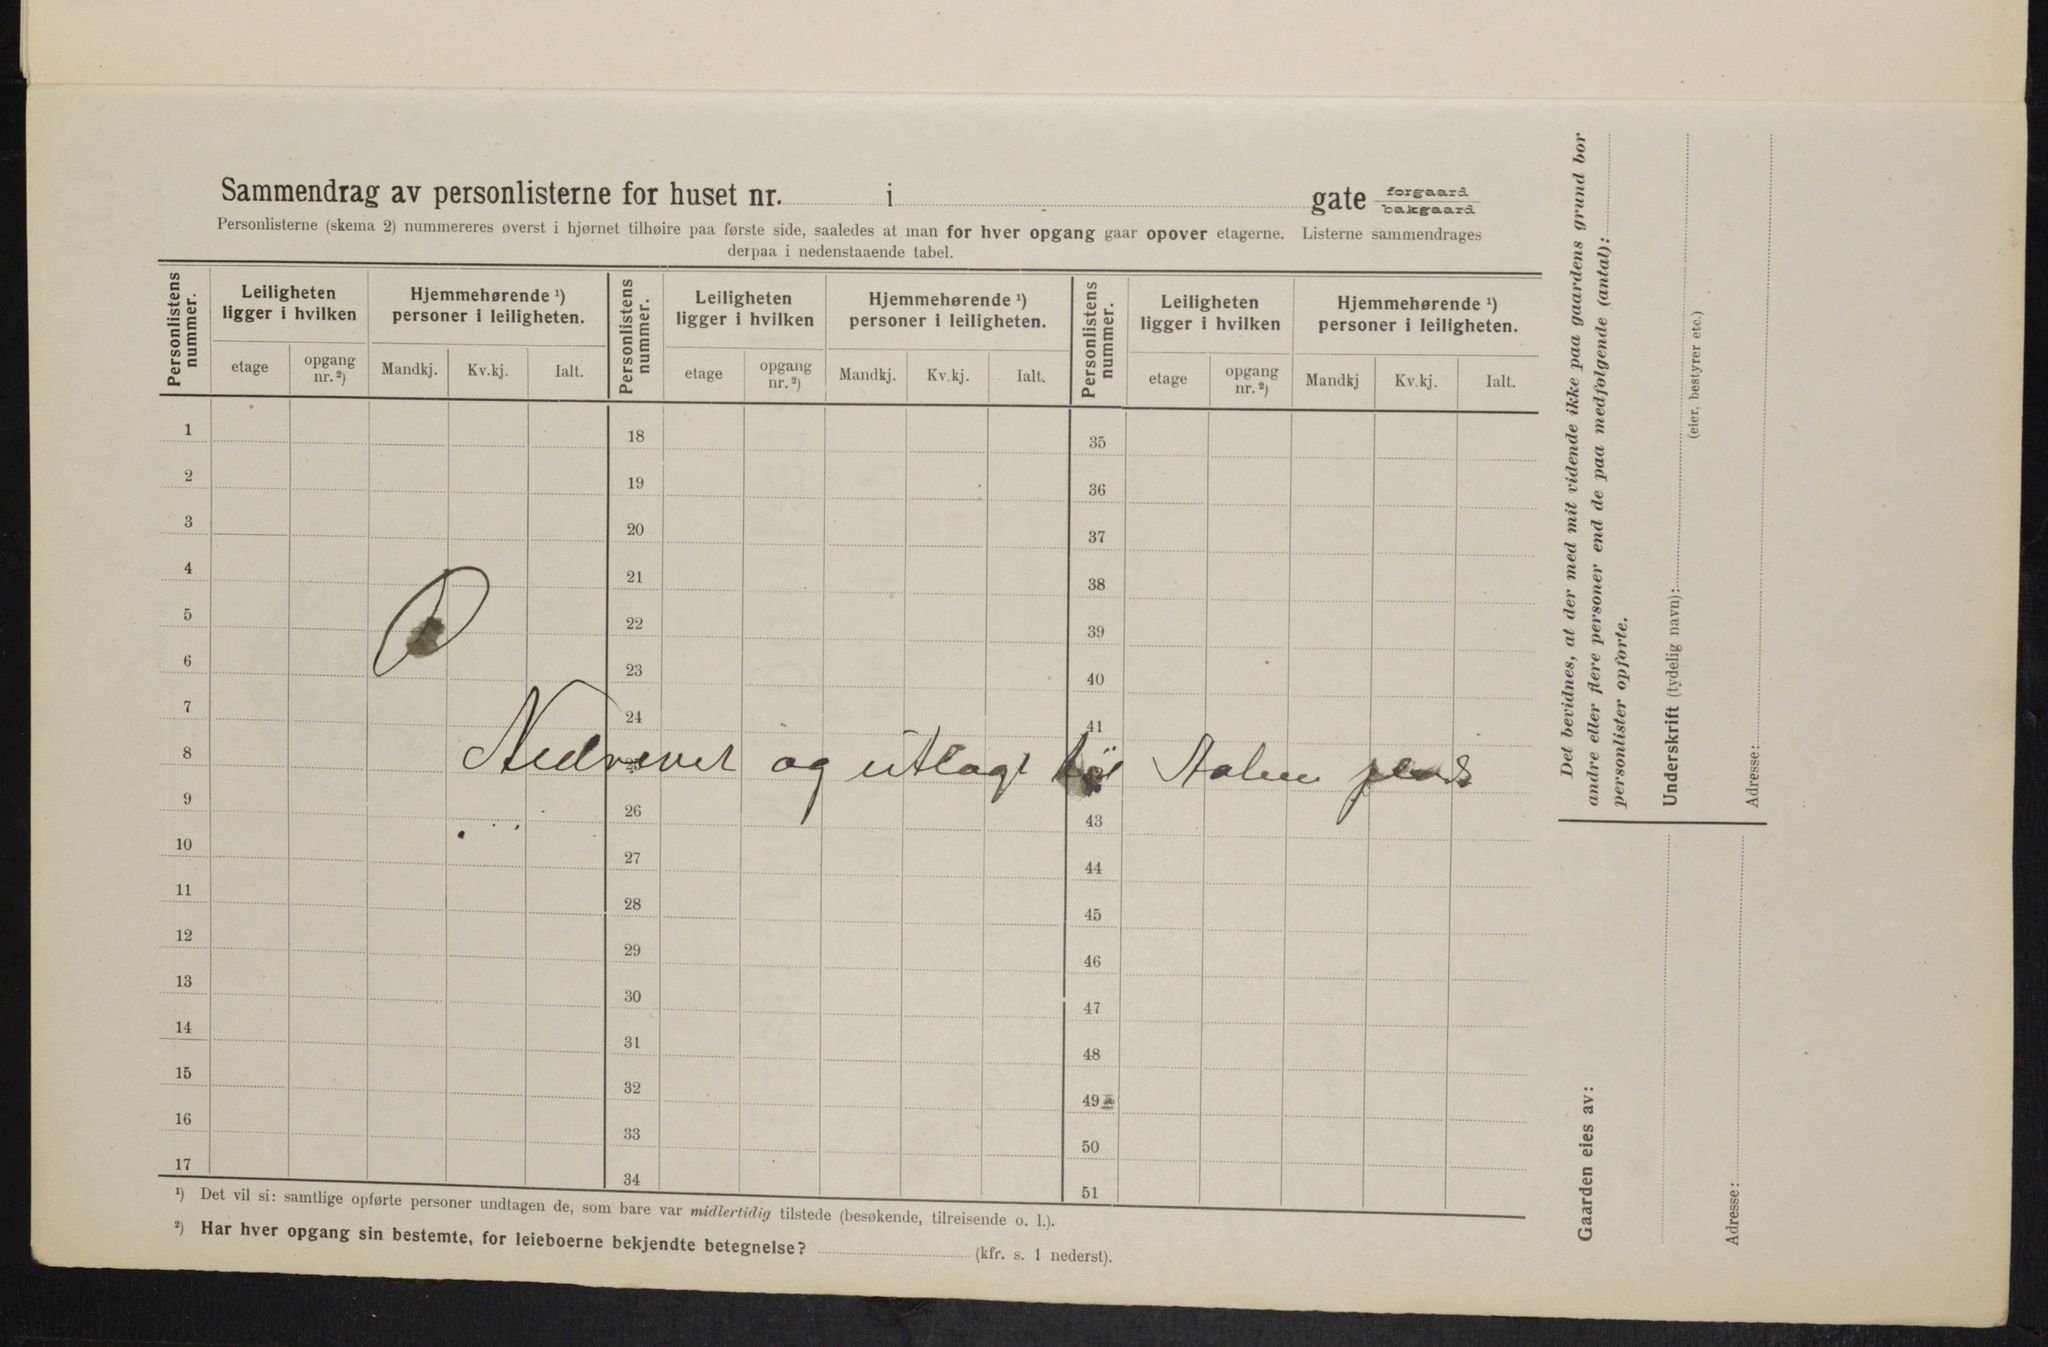 Sammendrag av personlisterne for huset nr. i gate forgaard bakgaard
Personlisterne (skema 2) nummereres øverst i hjørnet tilhøire paa første side, saaledes at man for hver opgang gaar opover etagerne. Listerne sammendrages
derpaa i nedenstaaende tabel.
Personlistens nummer.
Leiligheten ligger i hvilken
Hjemmehørende ¹) personer i leiligheten.
Personlistens nummer.
Leiligheten ligger i hvilken
Hjemmehørende ¹) personer i leiligheten.
Personlistens nummer.
Leiligheten ligger i hvilken
Hjemmehørende ¹) personer i leiligheten.
etage opgang nr. ²) Mandkj. Kv.kj. Ialt. etage opgang nr. ²) Mandkj. Kv.kj. Ialt. etage opgang nr. ²) Mandkj Kv.kj. Ialt.
1 18 35
2 19 36
3 20 37
4 21 38
5 22 39
6 23 40
7 24 41
8
Nedrevet og utlagt til
9 26 43
10 27 44
11 28 45
12 29 46
13 30 47
14 31 48
15 32 49
16 33 50
17 34 51
¹) Det vil si: samtlige opførte personer undtagen de, som bare var midlertidig tilstede (besøkende, tilreisende o. l.).
²) Har hver opgang sin bestemte, for leieboerne bekjendte betegnelse? (kfr. s. 1 nederst).
Det bevidnes, at der med mit vidende ikke paa gaardens grund bor
andre eller flere personer end de paa medfølgende (antal):
personlister opførte.
Underskrift (tydelig navn):
(eier, bestyrer etc.)
Adresse:
Gaarden eies av:
Adresse: